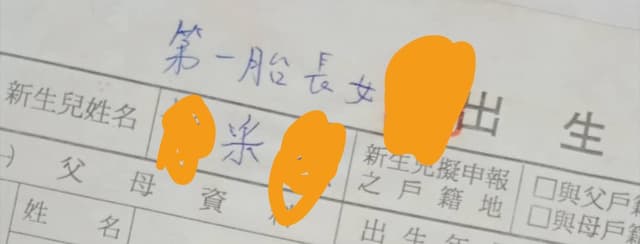 第一胎長女
出生
新生兒姓名
采
新生兒擬申報
之戶籍地
□與父戶籍
□與母戶籍
父母資
姓名
出生年